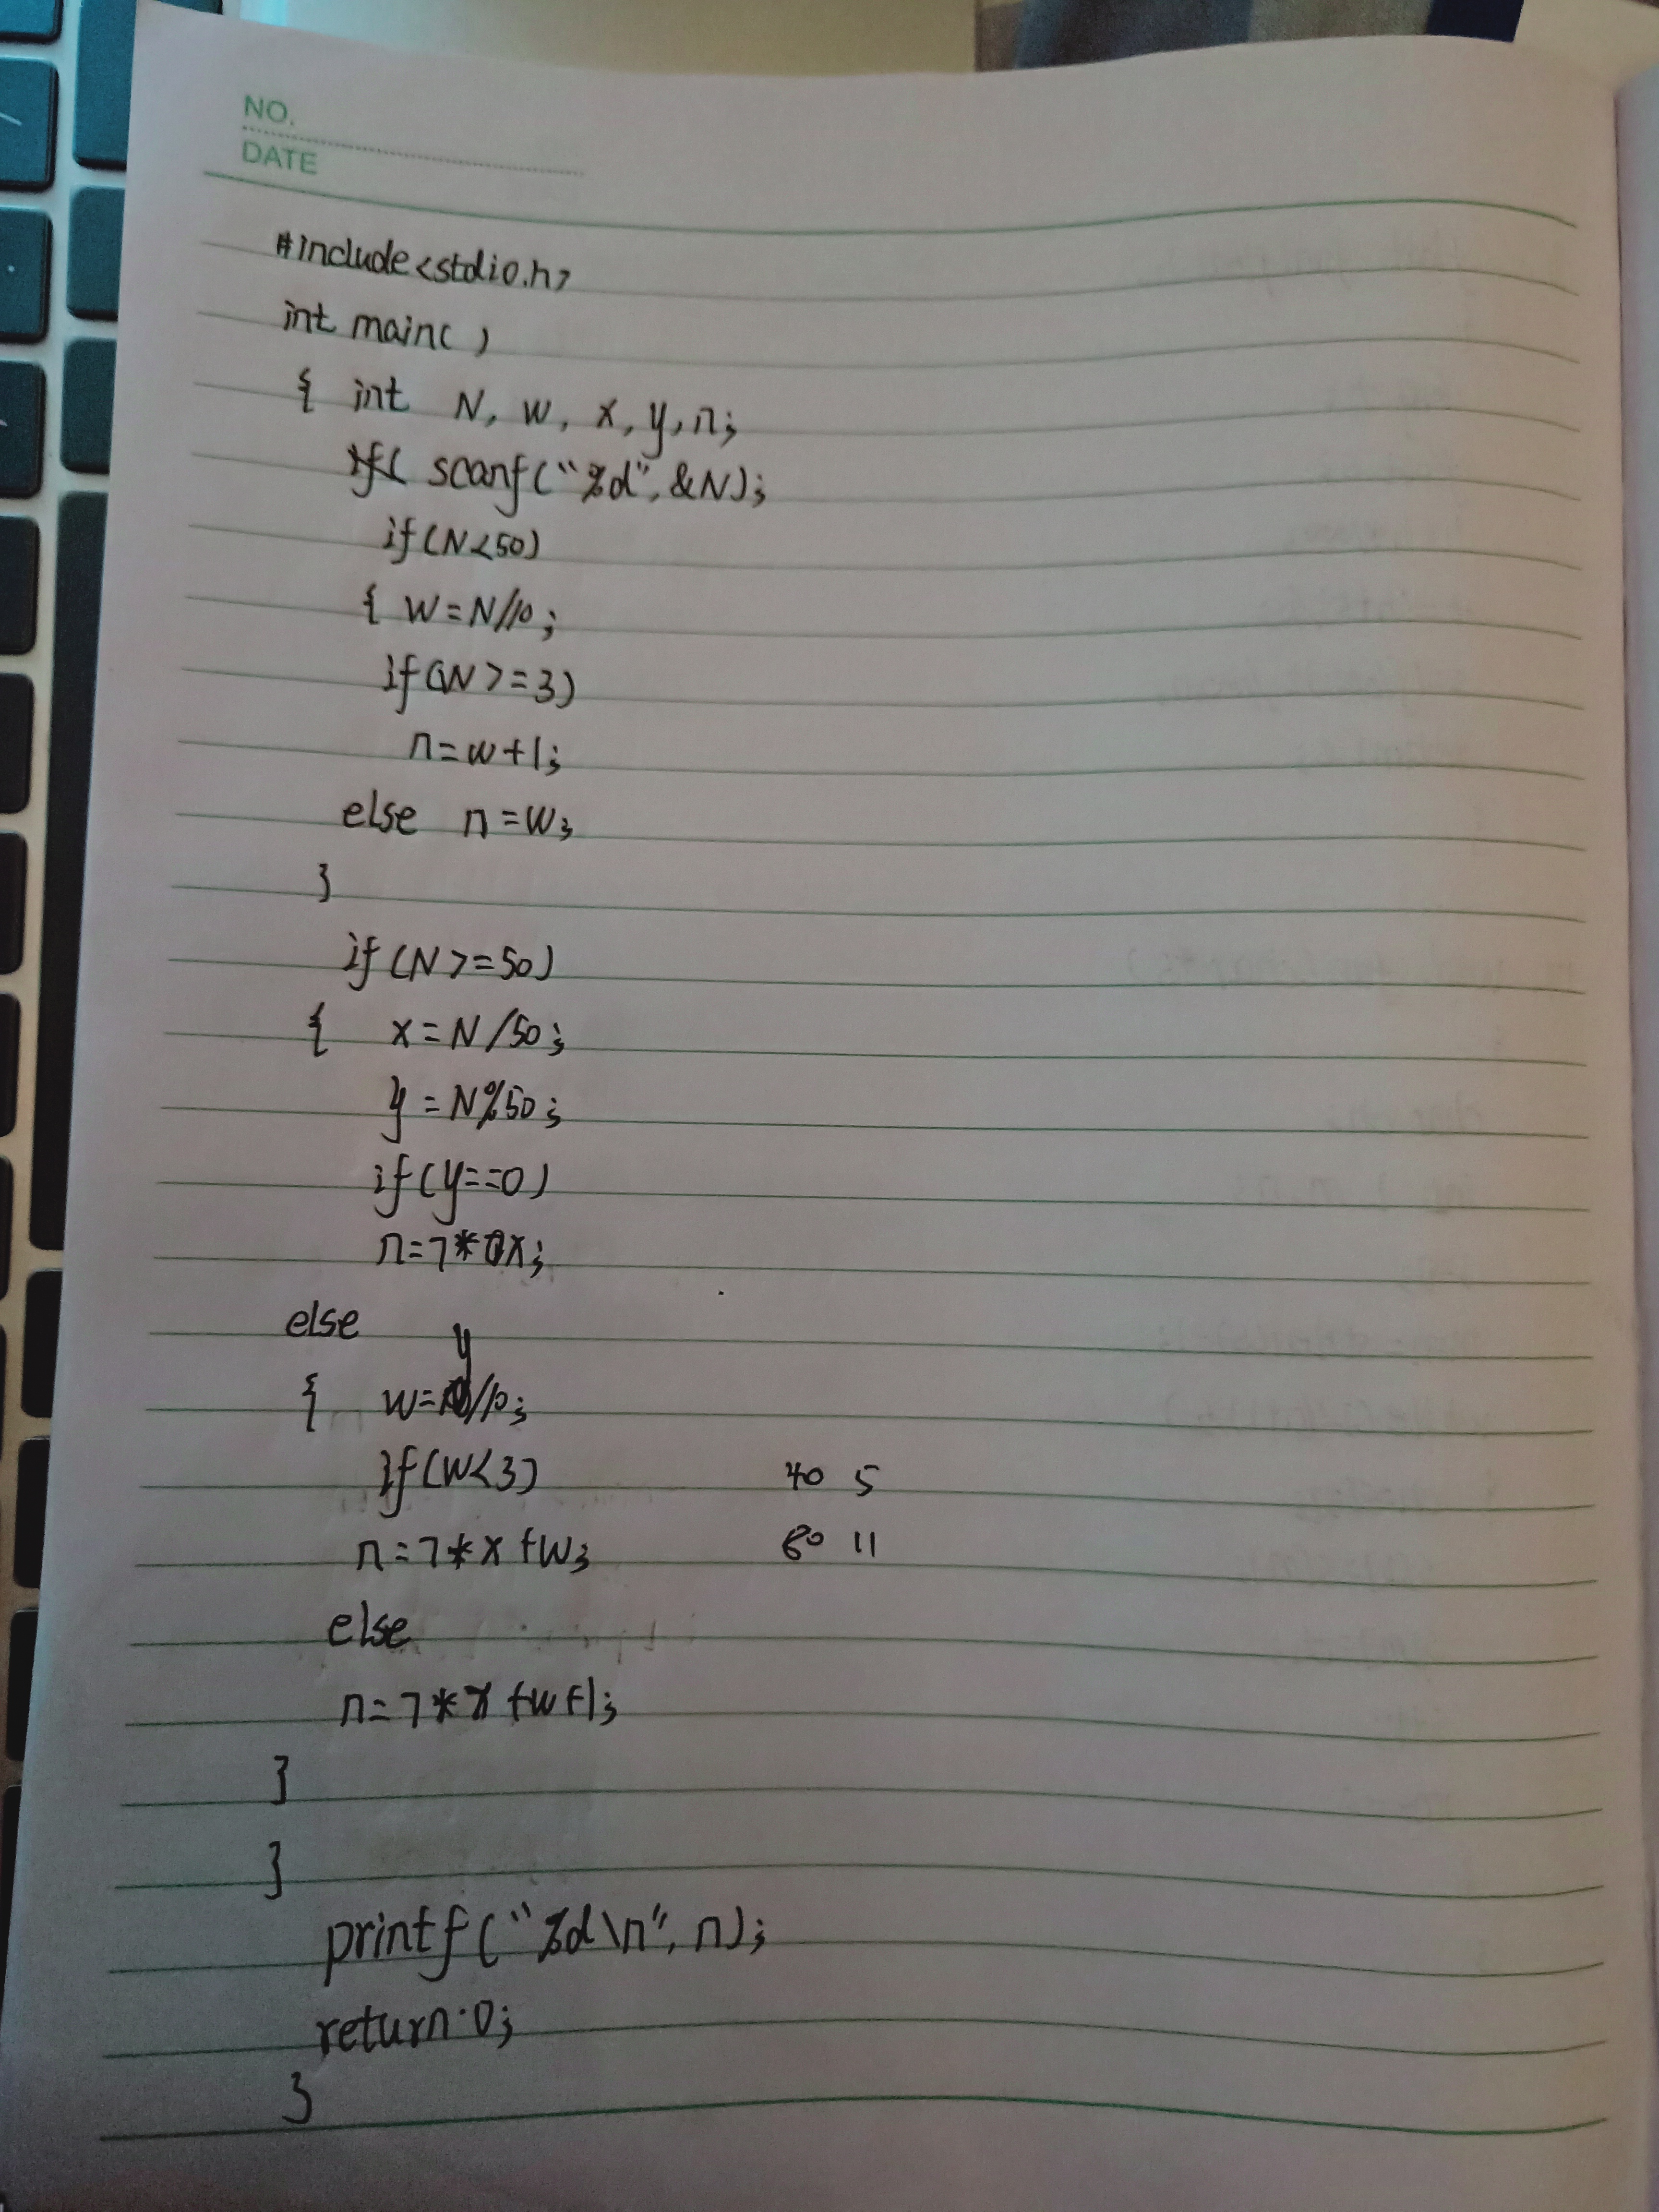 NO.
DATE
#include<stdio.h>
int main( )
{ int N, w, x, y, n;
scanf("%d", &N);
if(N<50)
{ w=N/10;
if(w>=3)
n=w+1;
else n=w;
}
if(N>=50)
{ x=N/50;
y=N%50;
if(y==0)
n=7*x;
else
{ w=y/10;
if(w<3) 40 5
n=7*x+w; 80 11
else
n=7*x+w+1;
}
}
printf("%d\n", n);
return 0;
}